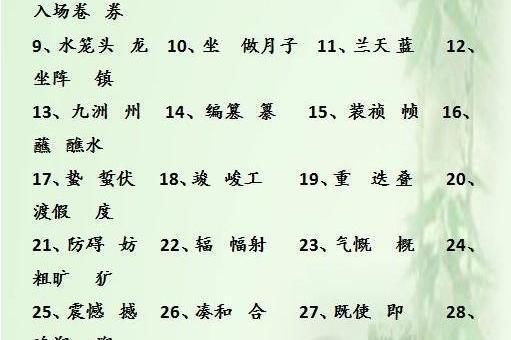 入场卷 券
9、水笼头 龙 10、坐 做月子 11、兰天 蓝 12、
坐阵 镇
13、九洲 州 14、编篡 纂 15、装祯 帧 16、
蘸 醮水
17、蛰 蜇伏 18、竣 峻工 19、重 迭 叠 20、
渡假 度
21、防碍 妨 22、辐 幅射 23、气慨 概 24、
粗旷 犷
25、震憾 撼 26、凑和 合 27、既使 即 28、